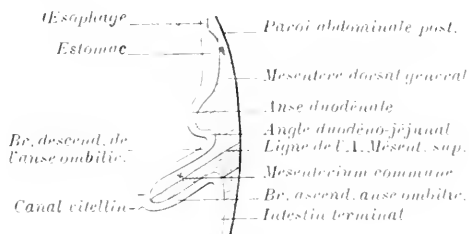 Œsophage
Estomac
Br. descend. de
l'anse ombilic.
Canal vitellin
Paroi abdominale post.
Mésentère dorsal général
Anse duodénale
Angle duodéno-jéjunal
Ligne de l'A. Mésent. sup.
Mesenterium commune
Br. ascend. anse ombilic.
Intestin terminal